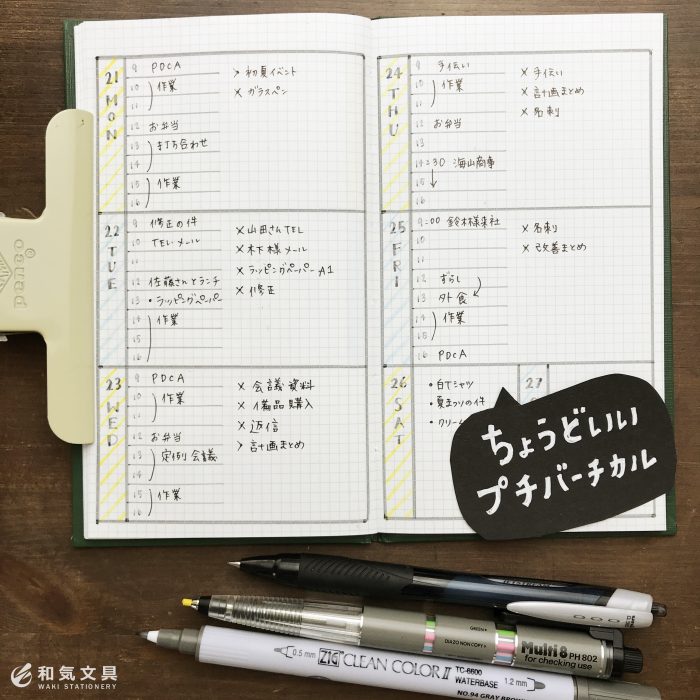 21
MON
9 PDCA
10 作業
11
12 お弁当
13 打ち合わせ
14
15 作業
16
> 初夏イベント
× ガラスペン
22
TUE
9 修正の件
10 TEL・メール
11
12 佐藤さんとランチ
13 ・ラッピングペーパー
14 作業
15
16
× 山田さんTEL
× 木下様メール
× ラッピングペーパーA1
× 修正
23
WED
9 PDCA
10 作業
11
12 お弁当
13 定例会議
14
15 作業
16
× 会議資料
× 備品購入
× 返信
> 計画まとめ
24
THU
9 手伝い
10 作業
11
12 お弁当
13
14:30 海山商事
15
16
× 手伝い
× 計画まとめ
× 名刺
25
FRI
9:00 鈴木様来社
10
11
12 ずらし
13 外食
14 作業
15
16 PDCA
× 名刺
× 改善まとめ
26
SAT
・白Tシャツ
・夏まつりの件
・クリーム
27
ちょうどいい
プチバーチカル
penco
JETSTREAM
GREEN
DIAZO NON COPY
Multi 8 PH 802
for checking use
0.5 mm ZIG CLEAN COLOR II TC-6600 1.2 mm
WATERBASE
NO.94 GRAY BROWN
和気文具
WAKI STATIONERY